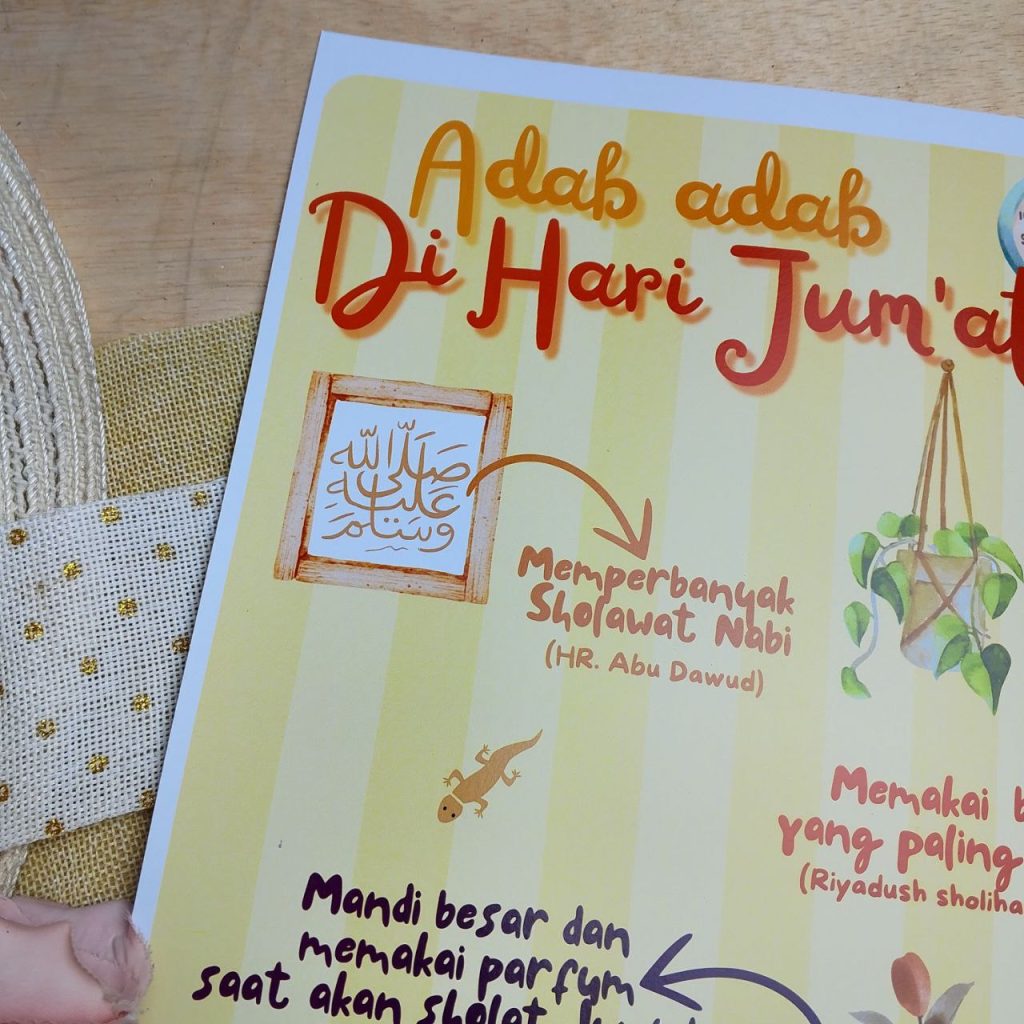 Adab adab
Di Hari Jum'at
صلى الله
عليه
وسلم
Memperbanyak
Sholawat Nabi
(HR. Abu Dawud)
Memakai
yang paling
(Riyadush
Mandi besar dan
memakai parfum
saat akan sholat